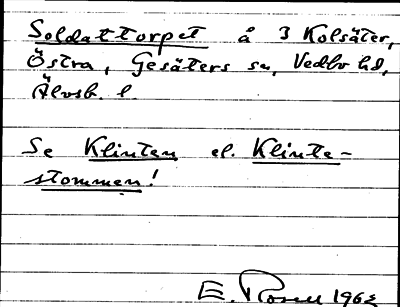 Soldattorpet å 3 Kolsäter,
Östra, Gesäters sn, Vedbo hd,
Älvsb. l.
Se Klinten el. Klinte-
stommen!
E. Rosell 1962